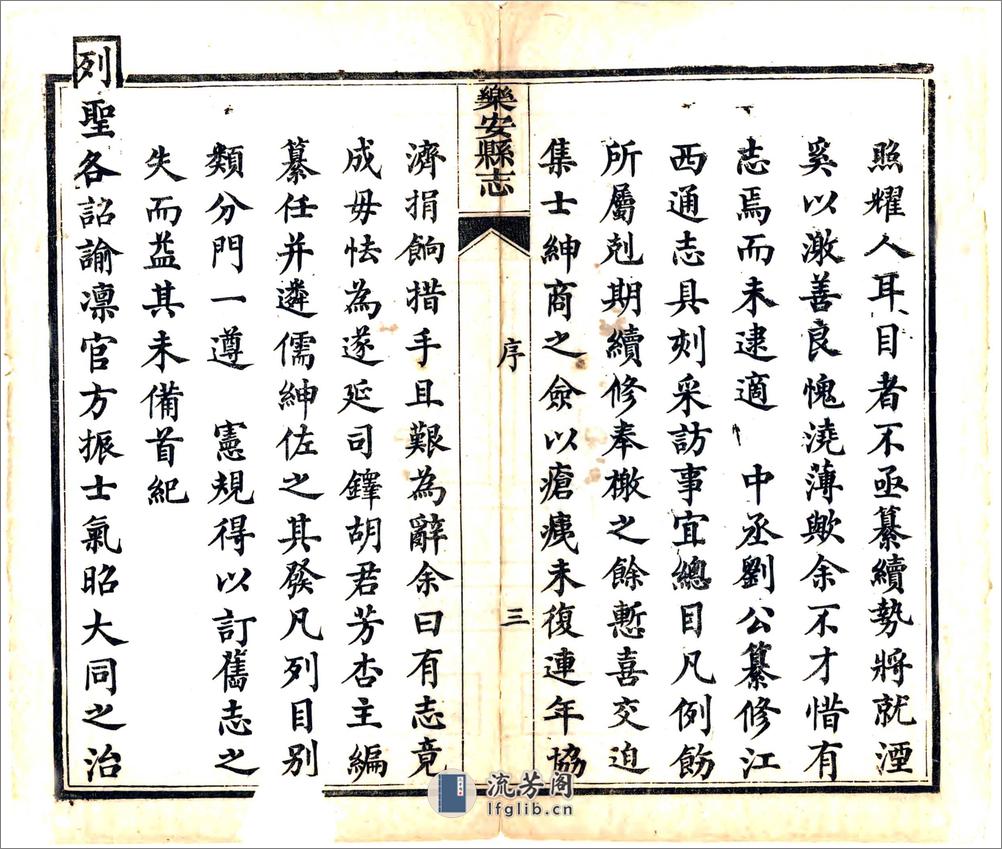 照耀人耳目者不亟纂續勢將就湮
奚以激善良愧澆薄歟余不才惜有
志焉而未逮適　中丞劉公纂修江
西通志具刻采訪事宜總目凡例飭
所屬剋期續修奉檄之餘慙喜交迫
集士紳商之僉以瘡痍未復連年協
樂安縣志
序
三
濟捐餉措手且艱為辭余曰有志竟
成毋怯為遂延司鐸胡君芳杏主編
纂任并遴儒紳佐之其發凡列目別
類分門一遵　憲規得以訂舊志之
失而益其未備首紀
列聖各詔諭凜官方振士氣昭大同之治
流芳阁
lfglib.cn